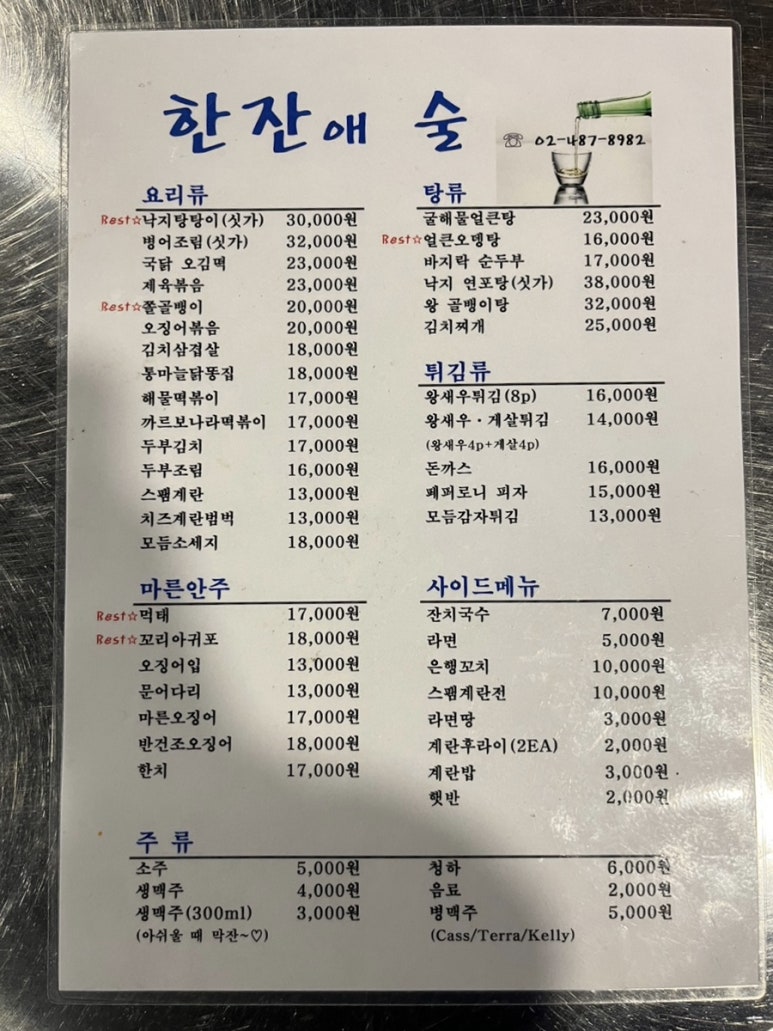 한잔애 술
☏ 02-487-8982
요리류
Best☆낙지탕탕이(싯가) 30,000원
병어조림(싯가) 32,000원
국닭 오김떡 23,000원
제육볶음 23,000원
Best☆쫄골뱅이 20,000원
오징어볶음 20,000원
김치삼겹살 18,000원
통마늘닭똥집 18,000원
해물떡볶이 17,000원
까르보나라떡볶이 17,000원
두부김치 17,000원
두부조림 16,000원
스팸계란 13,000원
치즈계란범벅 13,000원
모듬소세지 18,000원
탕류
굴해물얼큰탕 23,000원
Best☆얼큰오뎅탕 16,000원
바지락 순두부 17,000원
낙지 연포탕(싯가) 38,000원
왕 골뱅이탕 32,000원
김치찌개 25,000원
튀김류
왕새우튀김(8p) 16,000원
왕새우·게살튀김 14,000원
(왕새우4p+게살4p)
돈까스 16,000원
페퍼로니 피자 15,000원
모듬감자튀김 13,000원
마른안주
Best☆먹태 17,000원
Best☆꼬리아귀포 18,000원
오징어입 13,000원
문어다리 13,000원
마른오징어 17,000원
반건조오징어 18,000원
한치 17,000원
사이드메뉴
잔치국수 7,000원
라면 5,000원
은행꼬치 10,000원
스팸계란전 10,000원
라면땅 3,000원
계란후라이(2EA) 2,000원
계란밥 3,000원
햇반 2,000원
주 류
소주 5,000원
생맥주 4,000원
생맥주(300ml) 3,000원
(아쉬울 때 막잔~♡)
청하 6,000원
음료 2,000원
병맥주 5,000원
(Cass/Terra/Kelly)